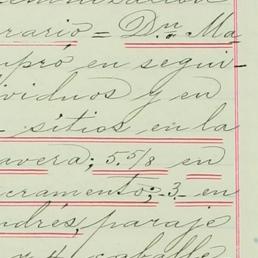 erario = Dn. Ma
mpró en segui-
dividuos y en
sitios en la
avera; 5.5/8 en
cramento; -3- en
ndrés, paraje
y 4 caballe